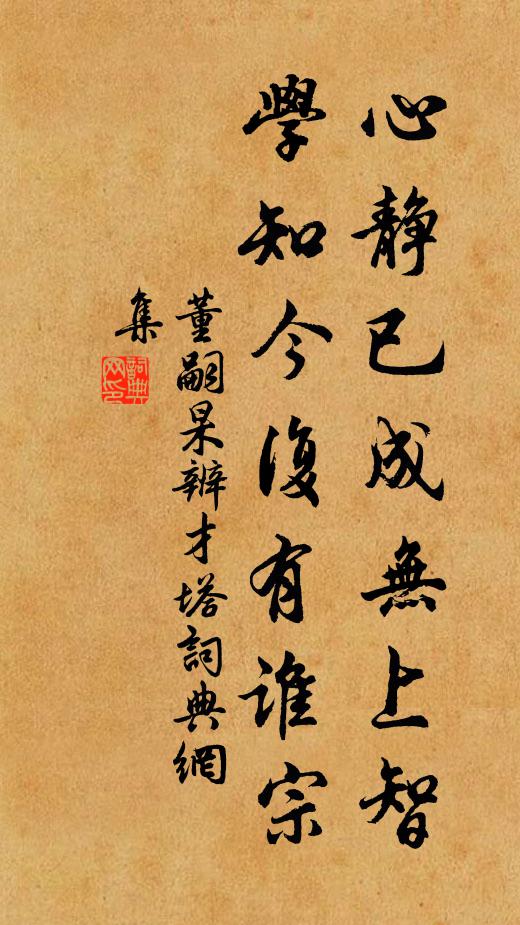 心靜已成無上智
學知今復有誰宗
董嗣杲辨才塔詞典網
集
詞典网印